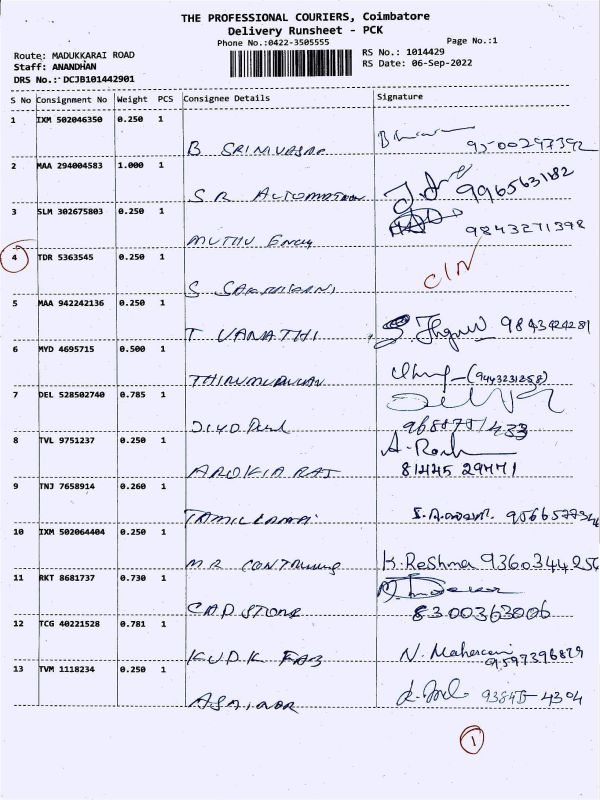 THE PROFESSIONAL COURIERS, Coimbatore
Delivery Runsheet - PCK
Phone No.:0422-3505555
Page No.:1
Route: MADUKKARAI ROAD
RS No.: 1014429
Staff: ANANDHAN
RS Date: 06-Sep-2022
DRS No.: DCJB101442901
S No Consignment No Weight PCS Consignee Details Signature
1 IXM 502046350 0.250 1
B SRINIVASAN 9500297392
2 MAA 294004583 1.000 1
S R AUTOMATION 9965631182
3 SLM 302675803 0.250 1
MUTHU Engg 9843271398
4 TDR 5363545 0.250 1
S C/N
5 MAA 942242136 0.250 1
T VANATHI 9843424281
6 MYD 4695715 0.500 1
THIRUMURUGAN (9443231258)
7 DEL 528502740 0.785 1
8 TVL 9751237 0.250 1
AROKIA RAJ 81445 29471
9 TNJ 7658914 0.260 1
10 IXM 502064404 0.250 1
M R K. Reshma 9360344256
11 RKT 8681737 0.730 1
CAPSTONE 8300363006
12 TCG 40221528 0.781 1
KUDK FAB N. Maheswari
9597396829
13 TVM 1118234 0.250 1
4304
1